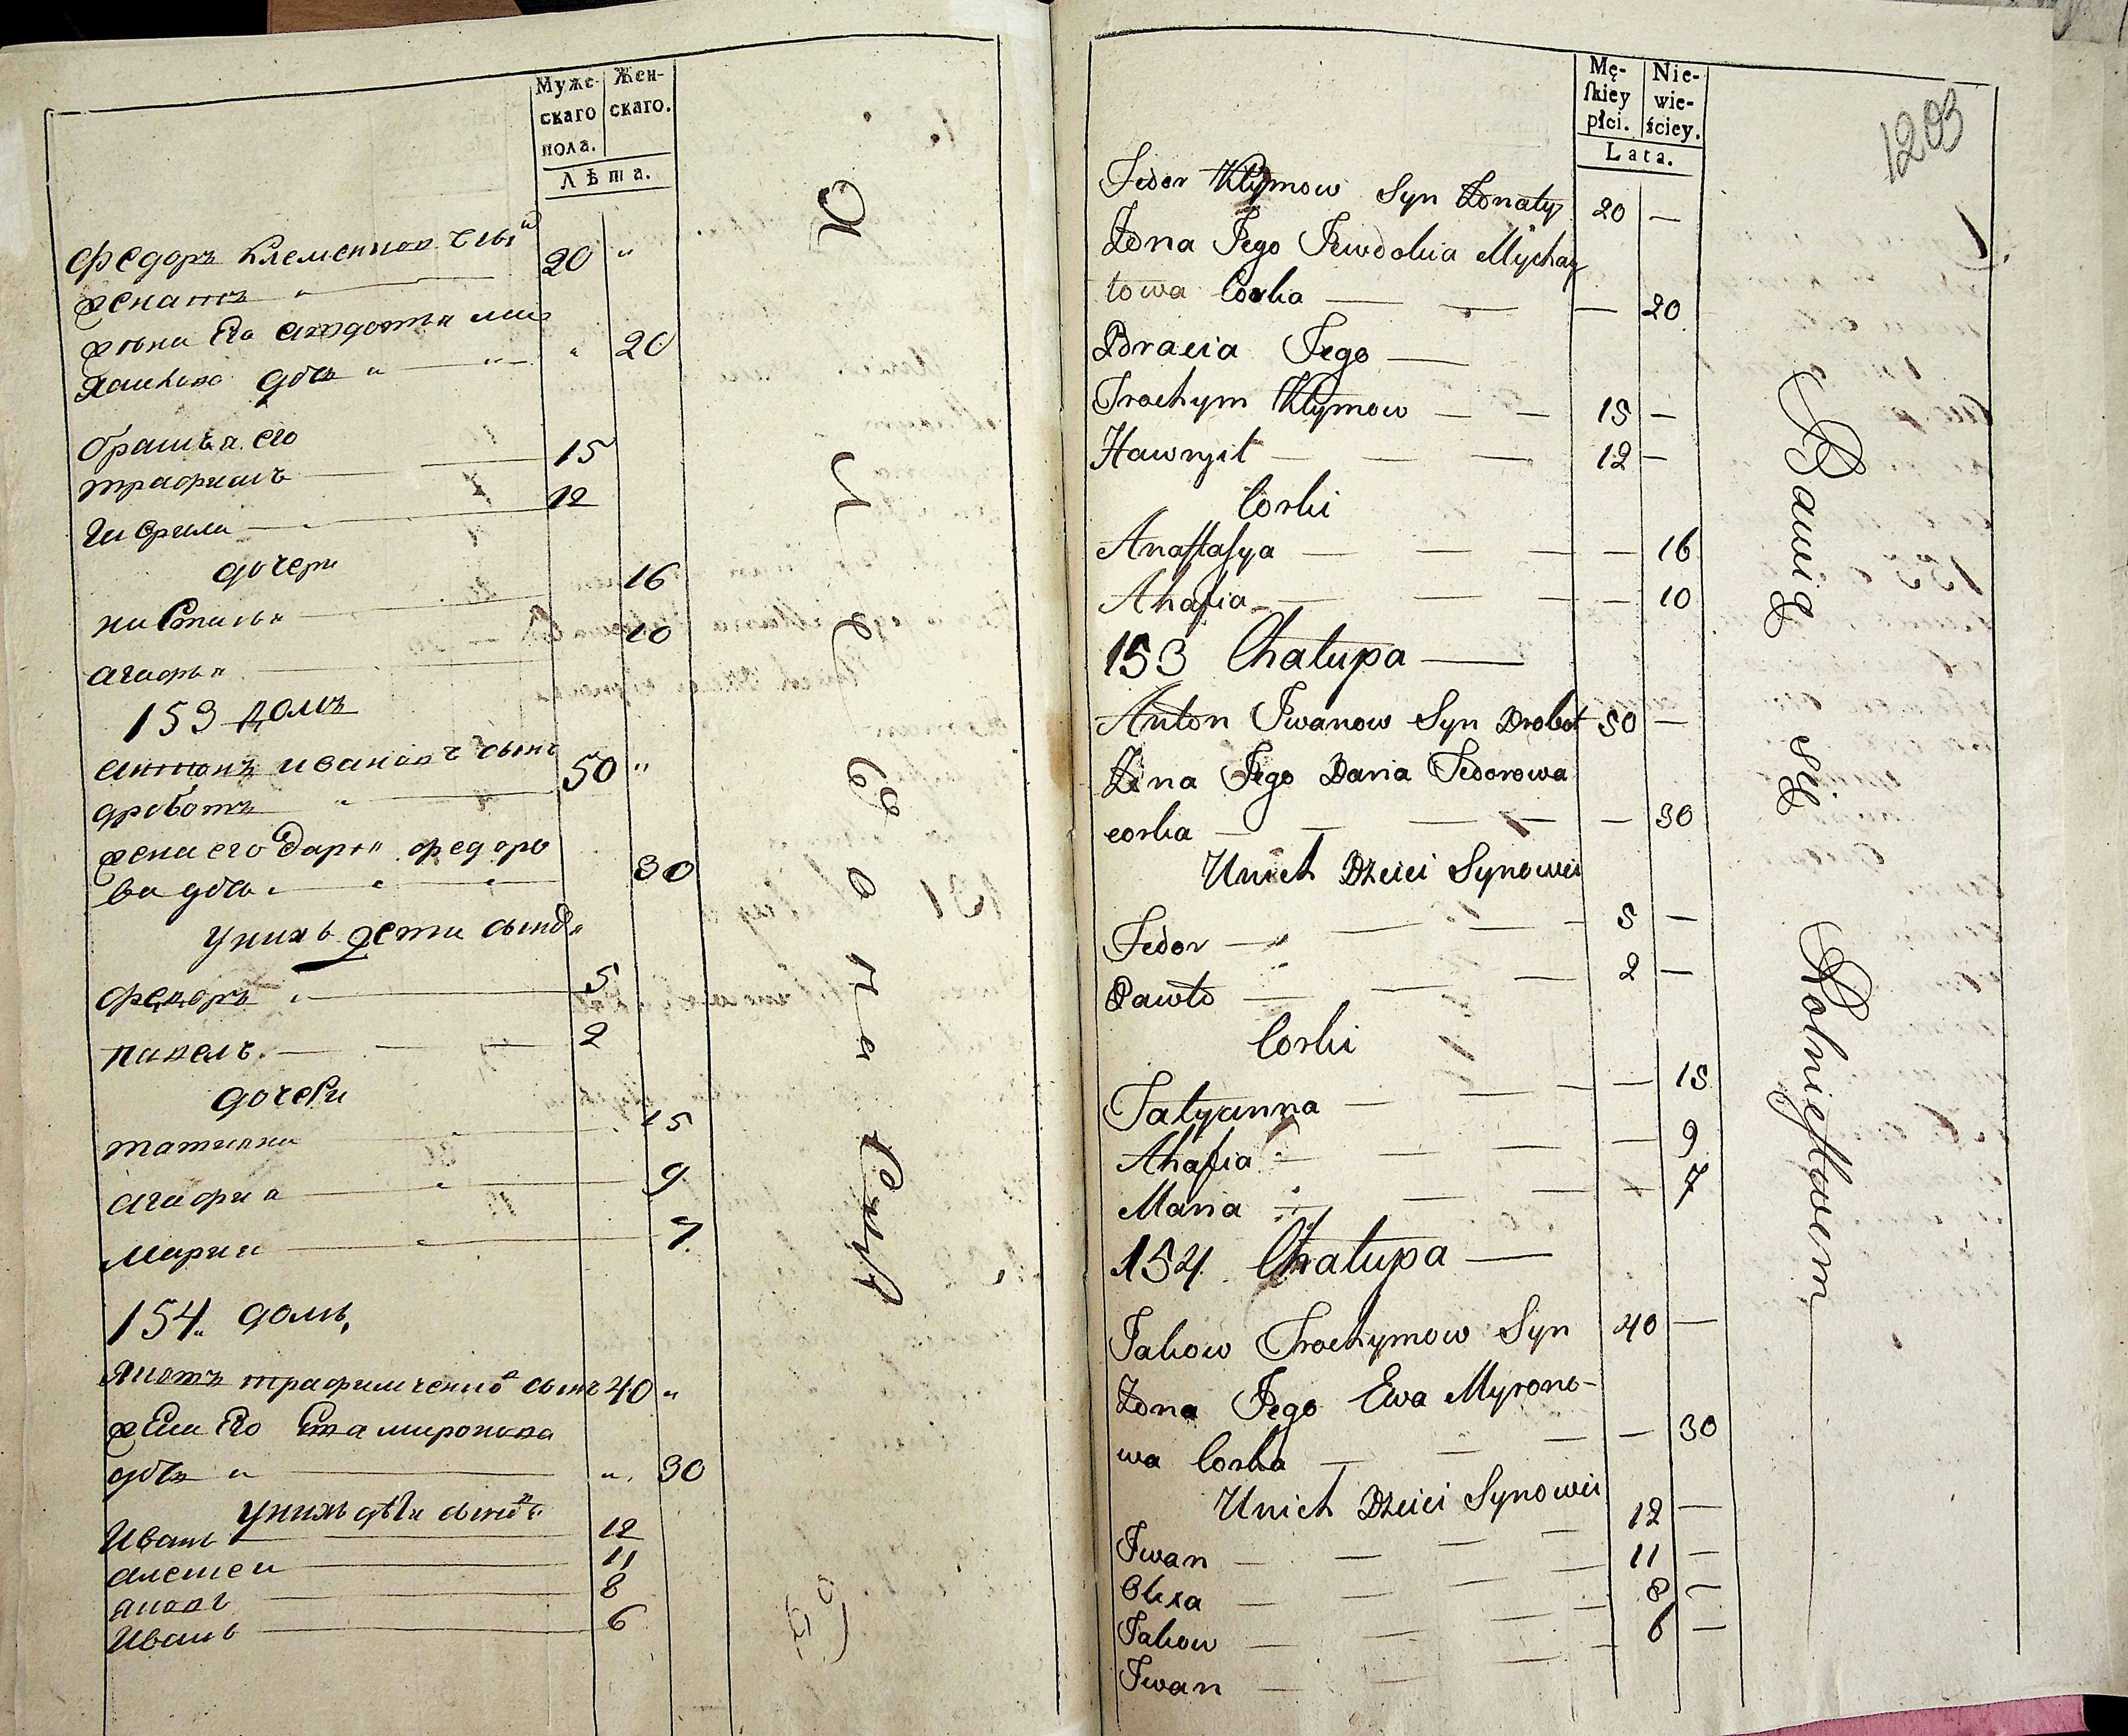 Муже-
скаго
пола.
Жен-
скаго.
Лѣта.
федоръ Клеменков сынъ
женатъ 20 "
жена Его авдотя миха
йлова дочь " 20
братья его
трафимъ 15
Гаврила 12
дочери
настасья 16
агафья 10
153 домъ
антонъ иванов сынъ
дроботъ 50 "
жена его Дарья федоро
ва дочь 30
у нихъ дети сыновья
федоръ 5
павелъ 2
дочери
татияна 15
агафия 9
мария 7
154. домъ,
яковъ трафимченко сынъ 40 "
жена Его Ева миронова
дочь " " 30
у нихъ дѣти сыновья
Иванъ 12
алексей 11
яков 8
Иванъ 6
69
Mę-
ſkiey
płci.
Nie-
wie-
ściey.
Lata.
1203
Fedor Klymow Syn Żonaty 20 —
Żona Jego Jewdokia Mychay
łowa Corka — — — 20
Bracia Jego —
Trochym Klymow — — 15 —
Hawryił — — — 12 —
Corki
Anaſtaſya — — — — 16
Ahafia — — — — 10
153 Chałupa —
Anton Iwanow Syn Drobot 50 —
Żona Jego Daria Fedorowa
corka — — — — 30
Unich Dzieci Synowie
Fedor — — — 5 —
Pawło — — — 2 —
Corki
Tatyanna — — — — 15
Ahafia — — — — 9
Maria — — — — 7
154. Chałupa —
Jakow Trochymow Syn 40 —
Żona Jego Ewa Myrono-
wa Corka — — — — 30
Unich Dzieci Synowie
Iwan — — — 12 —
Olexa — — — 11 —
Jakow — — — 8 —
Iwan — — — 6 —
Bawią się Rolnictwem